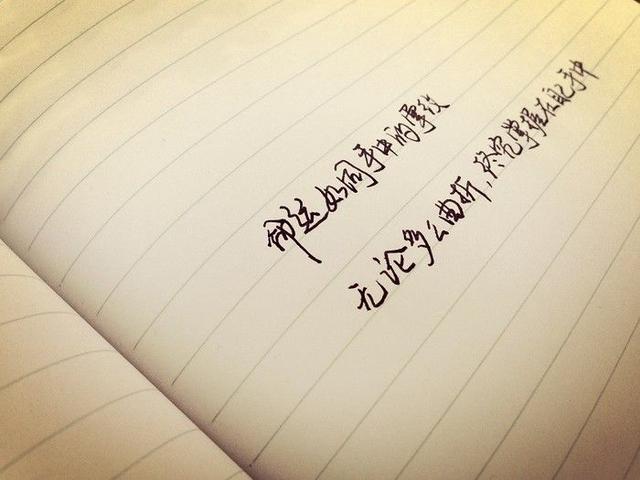 命运如同手中的掌纹
无论多么曲折,终究掌握在自己手中